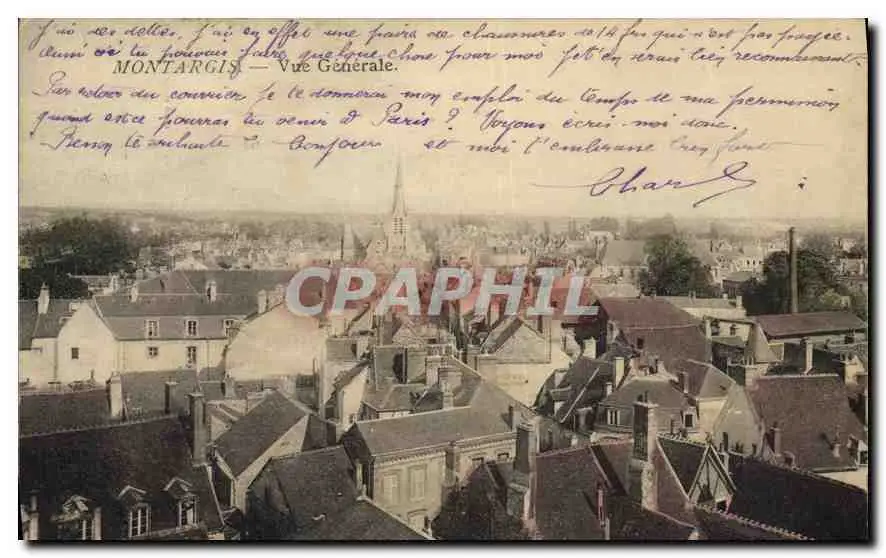 J'ai des dettes, j'ai en effet une paire de chaussures de 14 frs qui n'est pas payée.
aussi si tu pouvais faire quelque chose pour moi je t'en serais bien reconnaissant.
MONTARGIS. — Vue Générale.
Par retour du courrier je te donnerai mon emploi du temps de ma permission
quand est ce pourras tu venir à Paris ? Voyons écris-moi donc.
Bonjour et moi t'embrasse bien fort
Charles
CPAPHIL